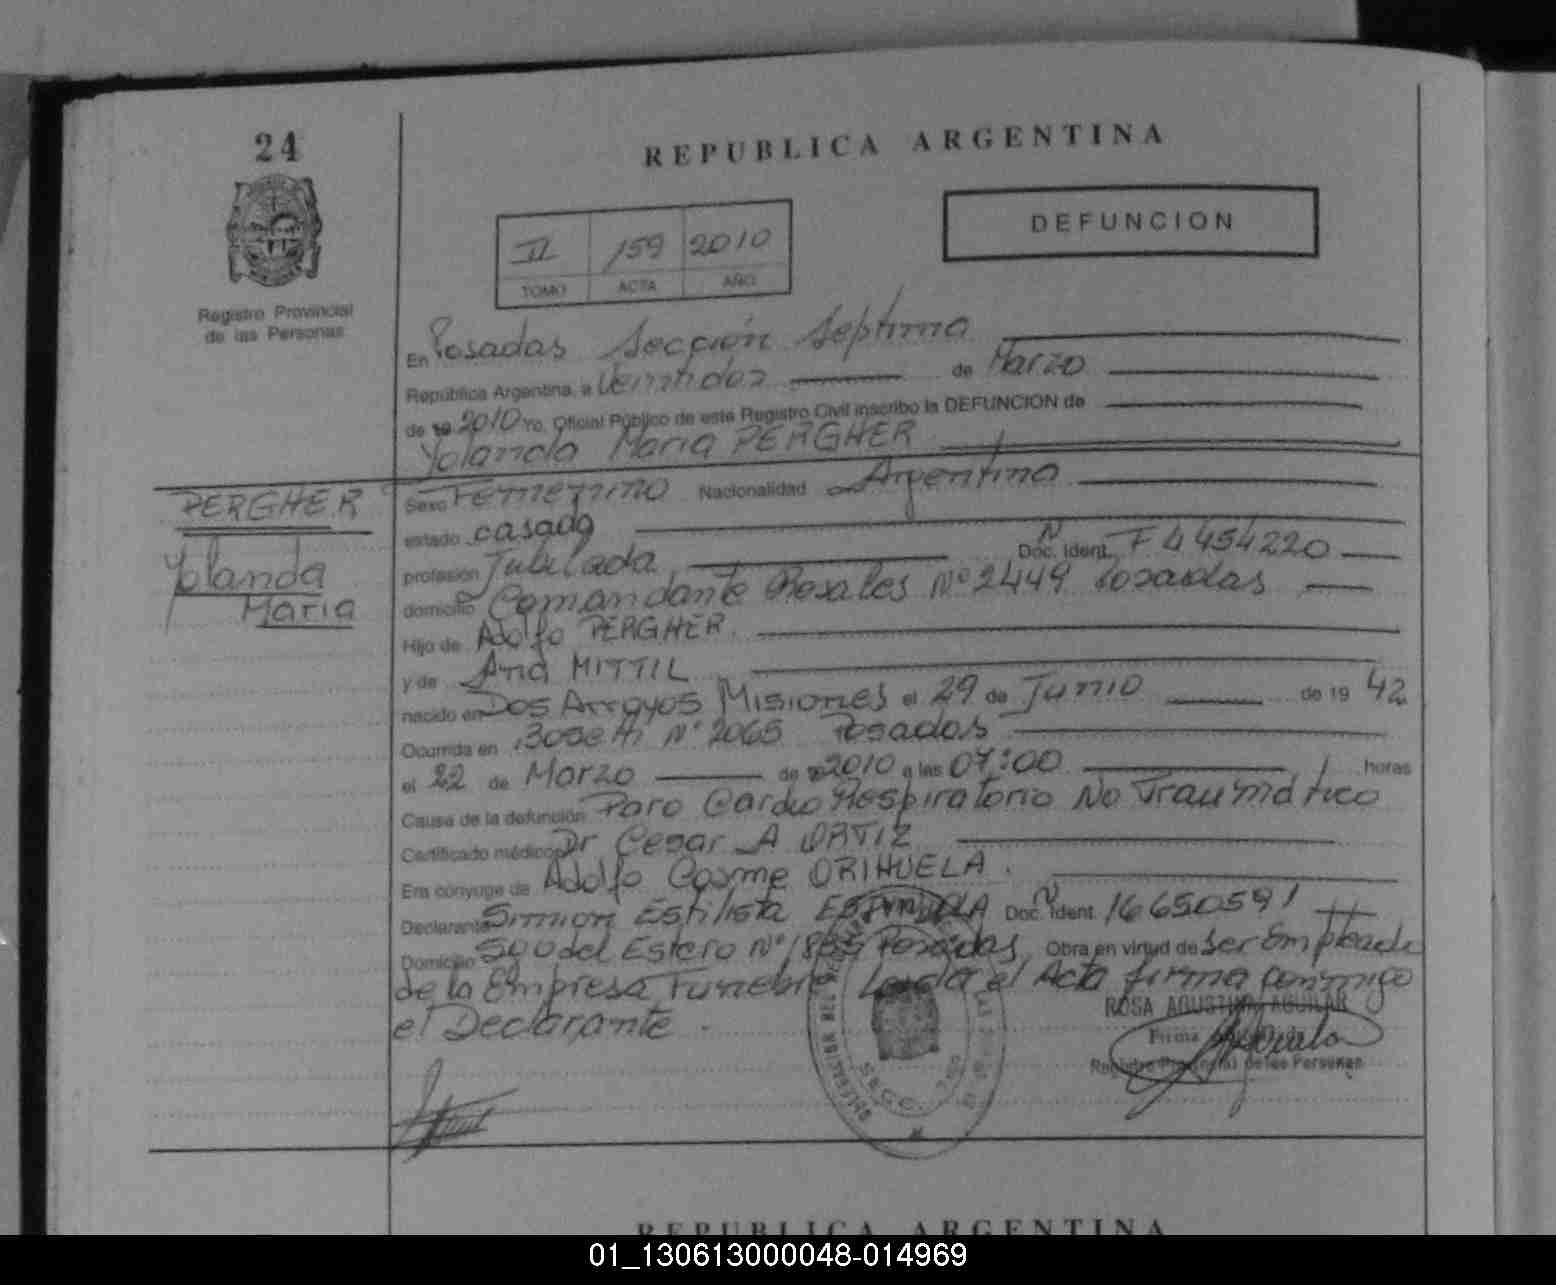 24
REPUBLICA ARGENTINA
Registro Provincial
de las Personas
II 159 2010
TOMO ACTA AÑO
DEFUNCION
En Posadas Sección Septima
República Argentina, a Veintidos de Marzo
de 19 2010 Yo, Oficial Público de este Registro Civil inscribo la DEFUNCION de
Yolanda Maria PERGHER
PERGHER
Yolanda
Maria
Sexo Femenino Nacionalidad Argentina
estado casada
profesión Jubilada Doc. Ident. F 4454220
domicilio Comandante Rosales Nº 2449 Posadas
Hijo de Adolfo PERGHER
y de Ana MITTIL
nacido en Dos Arroyos Misiones el 29 de Junio de 19 42
Ocurrida en Bosetti Nº 2065 Posadas
el 22 de Marzo de 2010 a las 07:00 horas
Causa de la defunción Paro Cardio Respiratorio No Traumático
Certificado médico Dr Cesar A ORTIZ
Era cónyuge de Adolfo Cosme ORIHUELA.
Declarante Simion Estilista ESPINDOLA Doc. Ident. 16650591
Domicilio Sgo del Estero Nº 1865 Posadas Obra en virtud de ser Empleado
de la Empresa Funebre Leida el Acta firma conmigo
el Declarante.
ROSA AGUSTINA AGUILAR
Firma
Registro Provincial de las Personas
REPUBLICA ARGENTINA
01_130613000048-014969